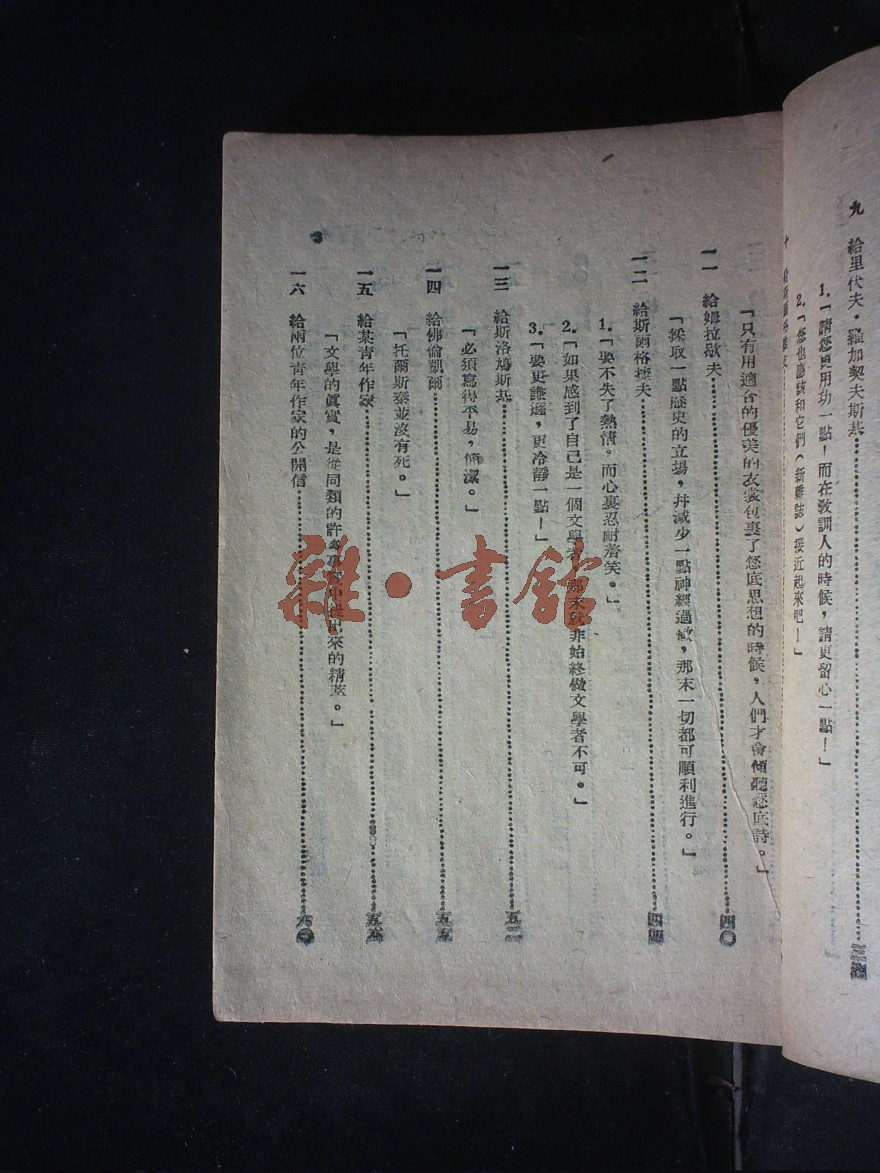 九 給里代夫·羅加契夫斯基
1.「請您更用功一點！而在教訓人的時候，請更留心一點！」
2.「您也應該和它們（新雜誌）接近起來吧！」
十 給斯
「只有用適合的優美的衣裳包裹了您底思想的時候，人們才會傾聽您底詩。」
一一 給姆拉歇夫…………四〇
「採取一點歷史的立場，幷減少一點神經過敏，那末一切都可順利進行。」
一二 給斯爾格捷夫…………四四
1.「要不失了熱情，而心裏忍耐着笑。」
2.「如果感到了自己是一個文學者，那末就非始終做文學者不可。」
3.「要更謙遜，更冷靜一點！」
一三 給斯洛鳩斯基…………五
「必須寫得平易，簡潔。」
一四 給佛倫凱爾…………五五
「托爾斯泰並沒有死。」
一五 給某青年作家…………五
「文學的眞實，是從同類的許多事實中提出來的精萃。」
一六 給兩位青年作家的公開信…………六〇
3
雜·書館